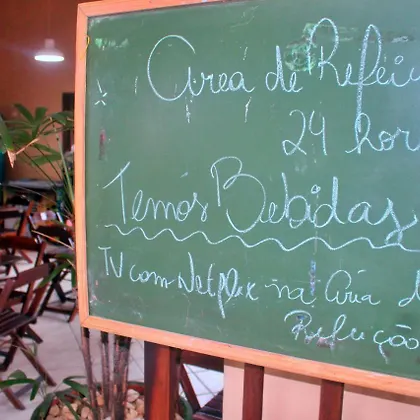 Area de Refei
24 hor
Temos Bebidas
TV com Netflix na Área d
Refeição